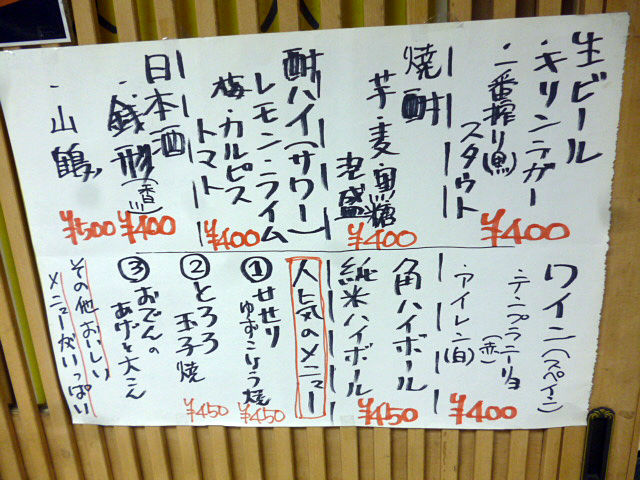 生ビール
・キリンラガー
・一番搾り(黒)
スタウト
¥400
焼酎
芋・麦・黒糖
泡盛
¥400
酎ハイ(サワー)
レモン・ライム
梅・カルピス
トマト
¥400
日本酒
・銭形(香川)
¥400
・山鶴
¥500
ワイン(スペイン)
・テンプラニーリョ
(赤)
・アイレン(白)
¥400
角ハイボール
純米ハイボール
¥450
人気のメニュー
①せせり
ゆずこしょう焼
¥450
②とろろ
玉子焼
¥450
③おでんの
あげと大こん
その他おいしい
メニューがいっぱい